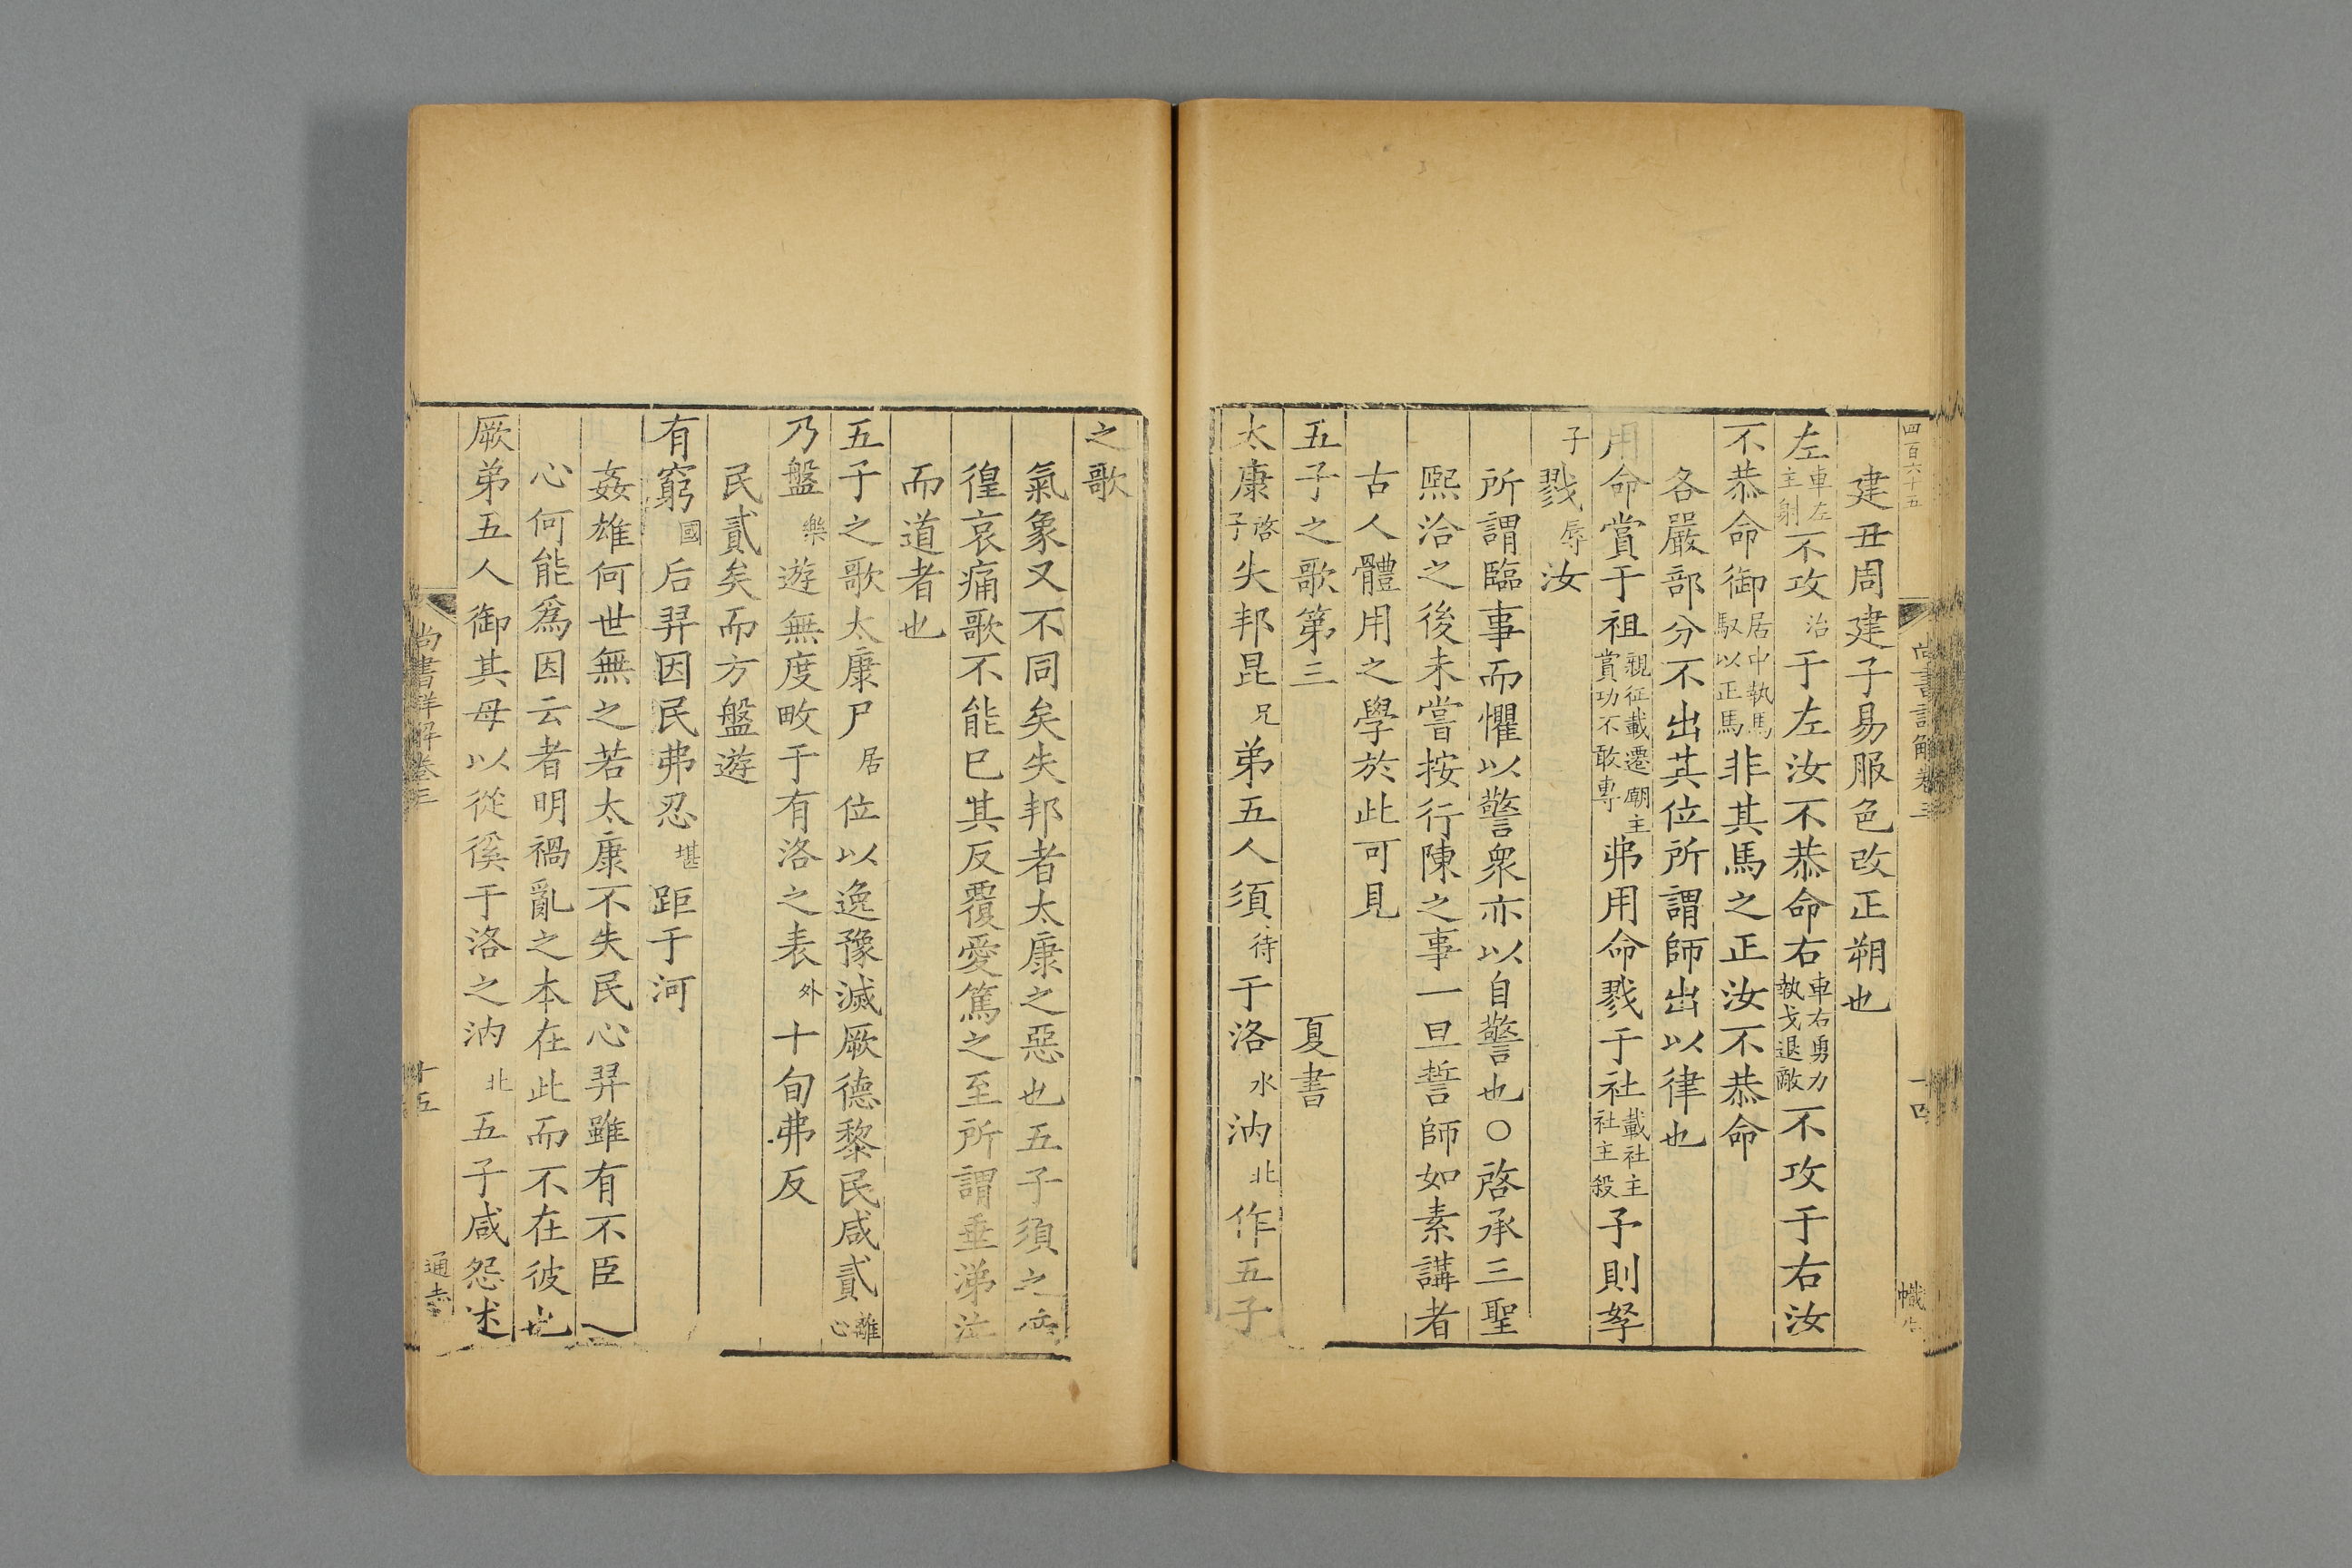 四百六十五
尚書詳解卷三
十四
建丑周建子易服色改正朔也
左車左主射不攻治于左汝不恭命右車右勇力執戈退敵不攻于右汝
不恭命御居中執馬馭以正馬非其馬之正汝不恭命
各嚴部分不出其位所謂師出以律也
用命賞于祖親征載遷廟主賞功不敢專弗用命戮于社載社主社主殺予則孥
子戮辱汝
所謂臨事而懼以警衆亦以自警也○啓承三聖
熙洽之後未嘗按行陳之事一旦誓師如素講者
古人體用之學於此可見
五子之歌第三 夏書
太康啓子失邦昆兄弟五人須待于洛水汭北作五子
之歌
氣象又不同矣失邦者太康之惡也五子須之
徨哀痛歌不能已其反覆愛篤之至所謂垂涕泣
而道者也
五子之歌太康尸居位以逸豫滅厥德黎民咸貳離心
乃盤樂遊無度畋于有洛之表外十旬弗反
民貳矣而方盤遊
有窮國后羿因民弗忍堪距于河
姦雄何世無之若太康不失民心羿雖有不臣
心何能爲因云者明禍亂之本在此而不在彼也
厥弟五人御其母以從徯于洛之汭北五子咸怨述
尚書詳解卷三
十五
通志